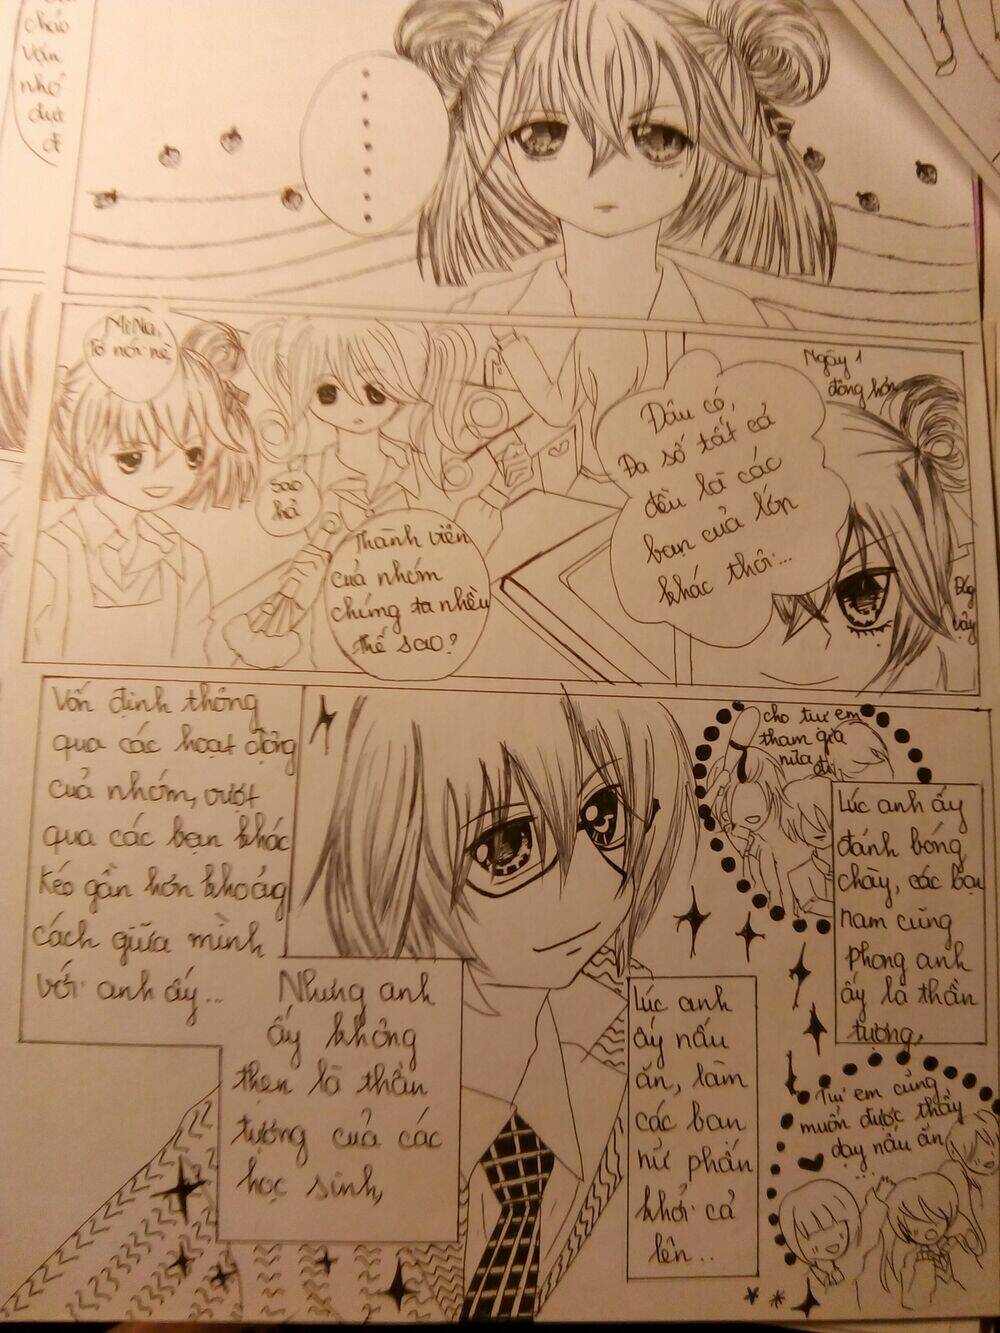 chảo
vẫn
nhớ
được
đi
.......
MiNa,
tớ nói nè
Sao
hả
Thành viên
của nhóm
chúng ta nhều
thế sao?
Đâu có,
Đa số tất cả
đều là các
bạn của lớp
khác thôi...
Ngày 1
đông hơn
vậy
Vốn định thông
qua các hoạt động
của nhóm, vượt
qua các bạn khác
kéo gần hơn khoảng
cách giữa mình
với anh ấy...
Nhưng anh
ấy không
thẹn là thần
tượng của các
học sinh,
cho tụi em
tham gia
nữa đi
Lúc anh ấy
đánh bóng
chày, các bạn
nam cũng
phong anh
ấy là thần
tượng,
Lúc anh
ấy nấu
ăn, làm
các bạn
nữ phấn
khởi cả
lên...
Tụi em cũng
muốn được thầy
dạy nấu ăn